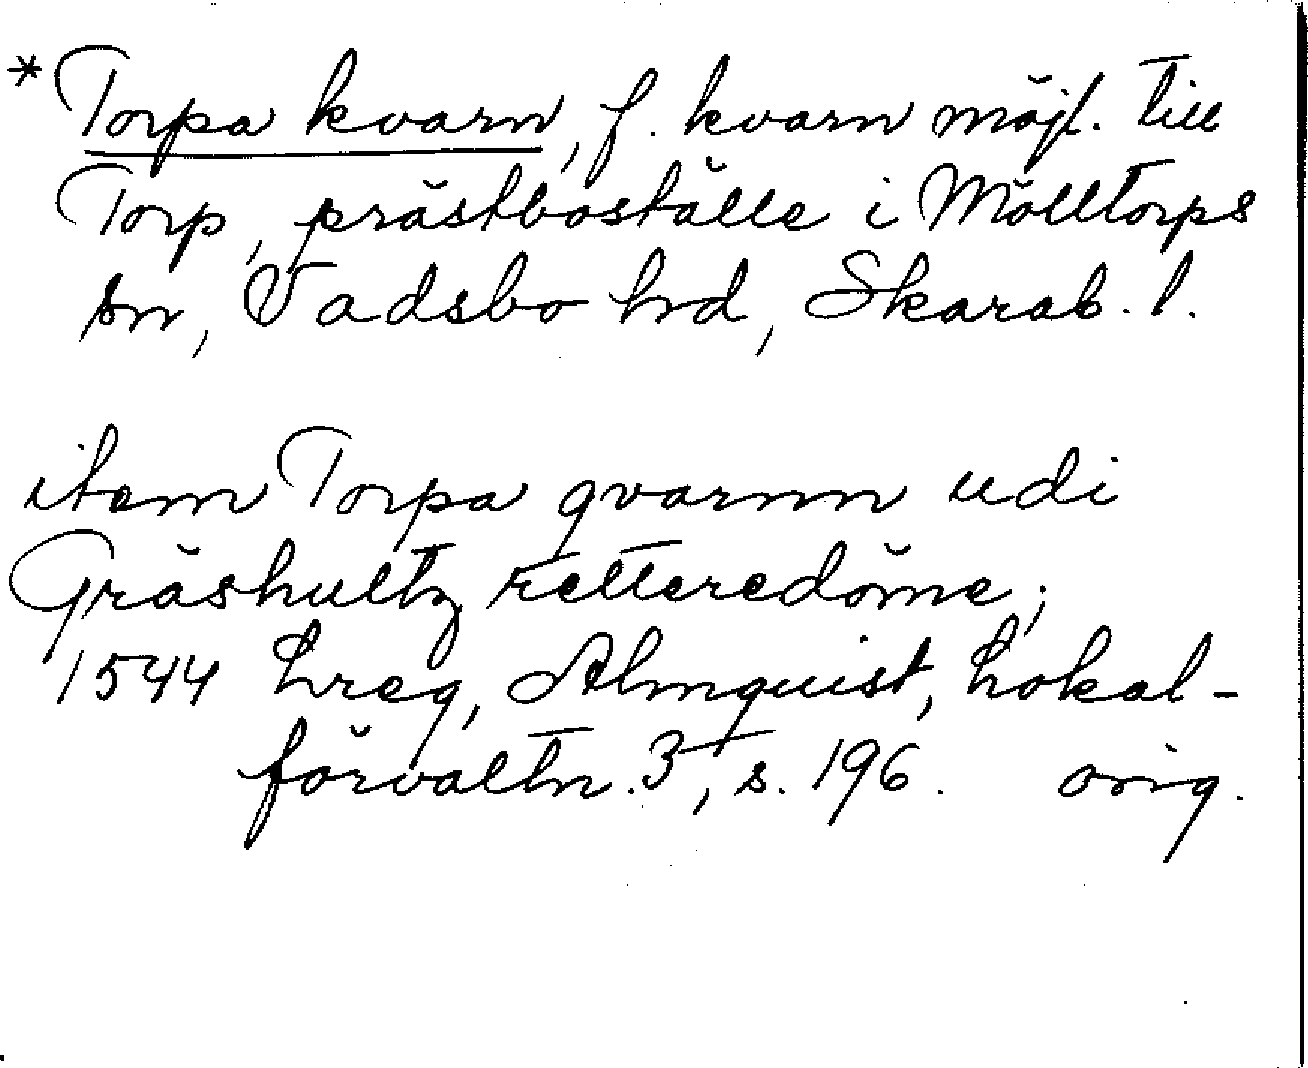 *Torpa kvarn, f. kvarn möjl. till
Torp, prästboställe i Mölltorps
sn, Vadsbo hd, Skarab. l.
item Torpa qvarnn udi
Gräshultz retteredöme;
1544 Lreg, Almquist, Lokal-
förvaltn. 3, s. 196. orig.